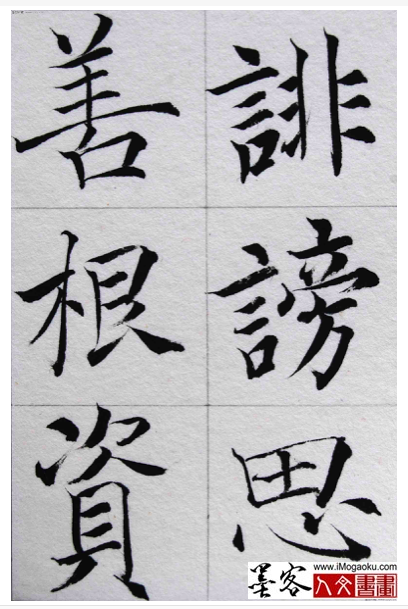 誹謗思
善根資
www.iMogaoku.com
墨客
人文書畫